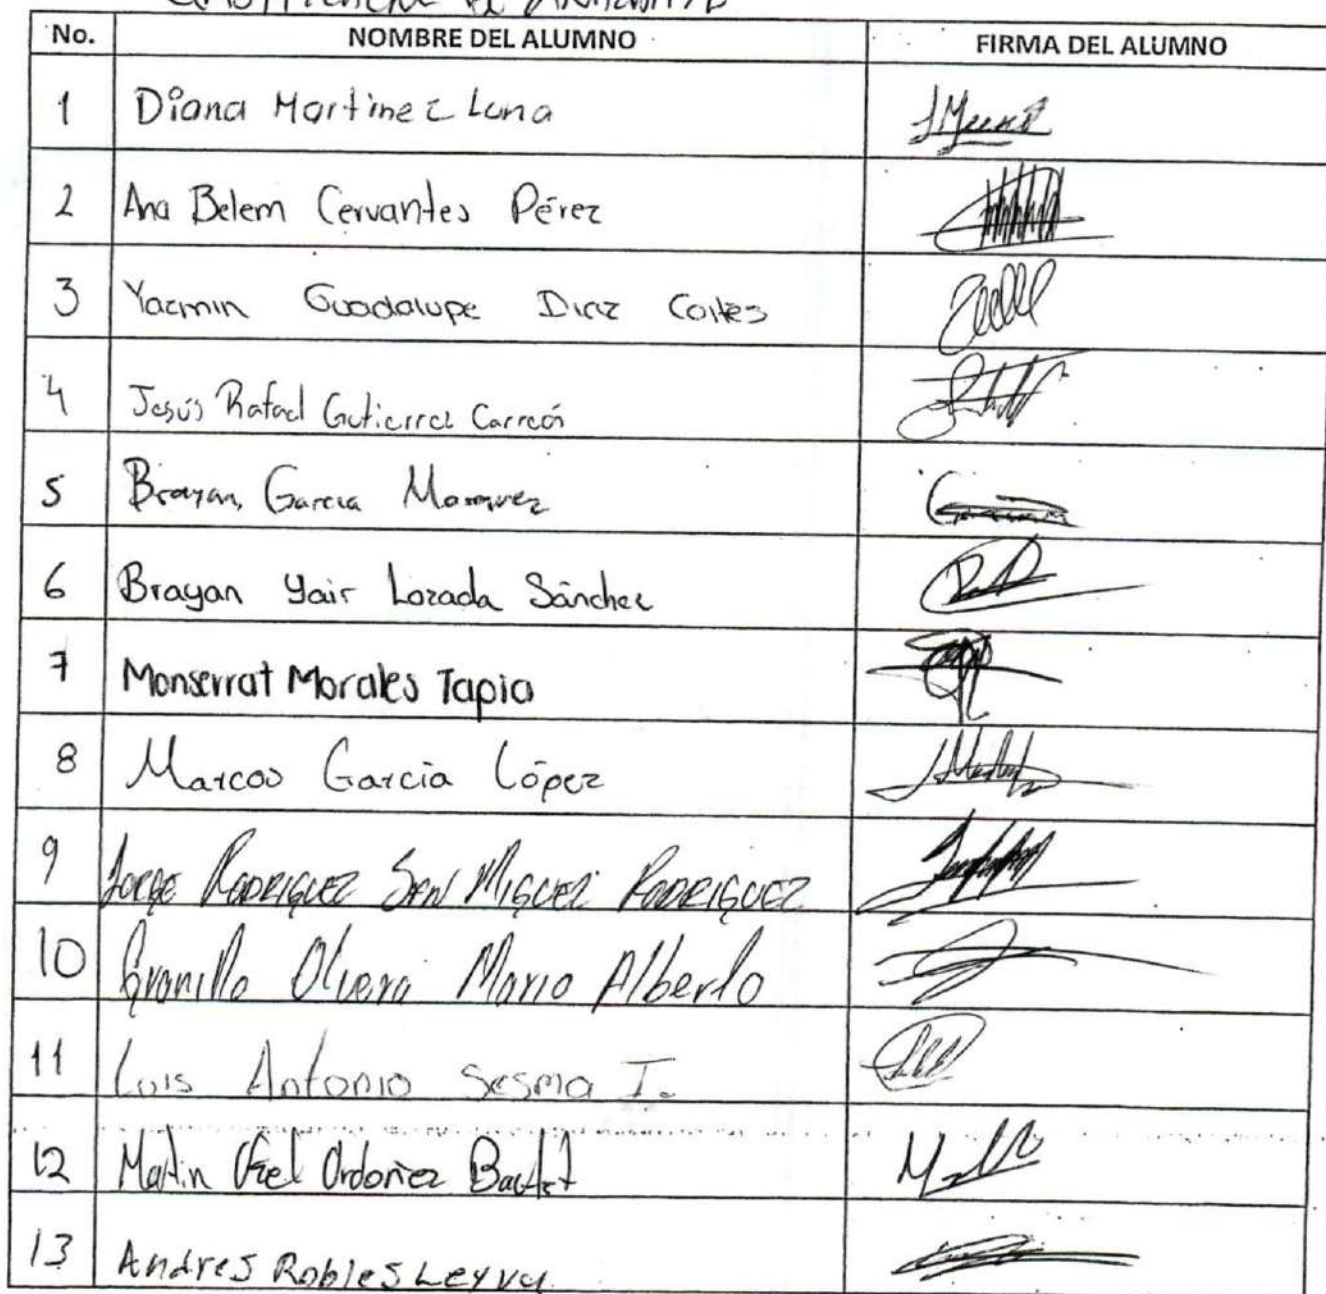 No. NOMBRE DEL ALUMNO FIRMA DEL ALUMNO
1 Diana Martinez Luna
2 Ana Belem Cervantes Pérez
3 Yazmin Guadalupe Diaz Cortes
4 Jesús Rafael Gutierrez Carreón
5 Brayan Garcia
6 Brayan Yair Lozada Sánchez
7 Monserrat Morales Tapia
8 Marcos García López
9 JORGE RODRIGUEZ SAN MIGUEL RODRIGUEZ
10 Granillo Olvera Mario Alberto
11 Luis Antonio Sesma I.
12 Ordoñez
13 Andres Robles Leyva